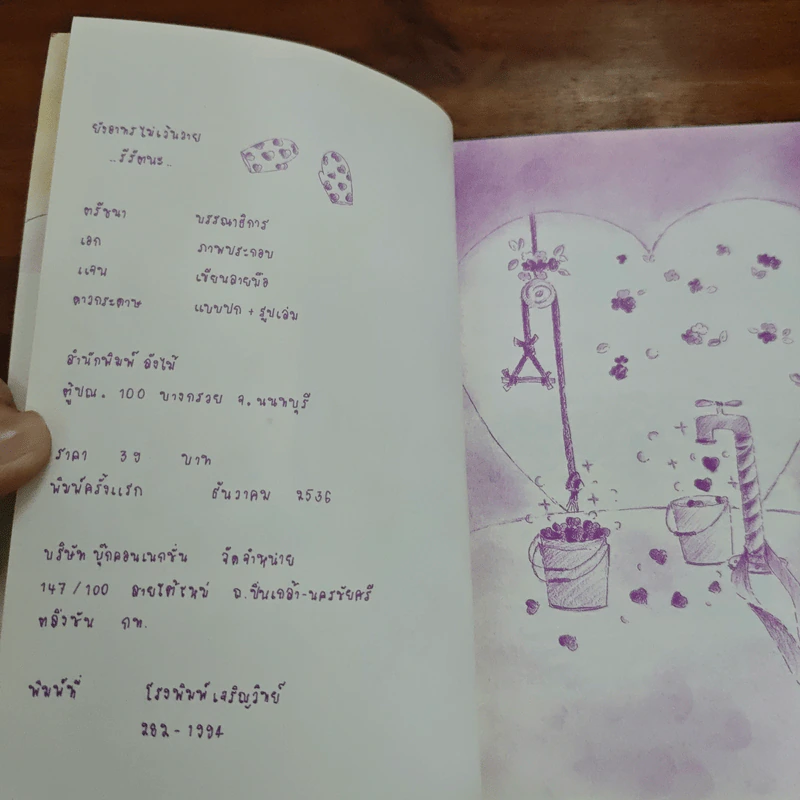 ยังอาทรไม่เว้นวาย
..รีรัตนะ..
ตรัชนา บรรณาธิการ
เอก ภาพประกอบ
แจน เขียนลายมือ
ดาวกระดาษ แบบปก + รูปเล่ม
สำนักพิมพ์ อังไม้
ตู้ปณ. 100 บางกรวย จ.นนทบุรี
ราคา 39 บาท
พิมพ์ครั้งแรก ธันวาคม 2536
บริษัท บุ๊คคอนเนกชั่น จัดจำหน่าย
147/100 สายใต้ใหม่ ถ.ปิ่นเกล้า-นครชัยศรี
ตลิ่งชัน กท.
พิมพ์ที่ โรงพิมพ์เจริญวิทย์
282-1994